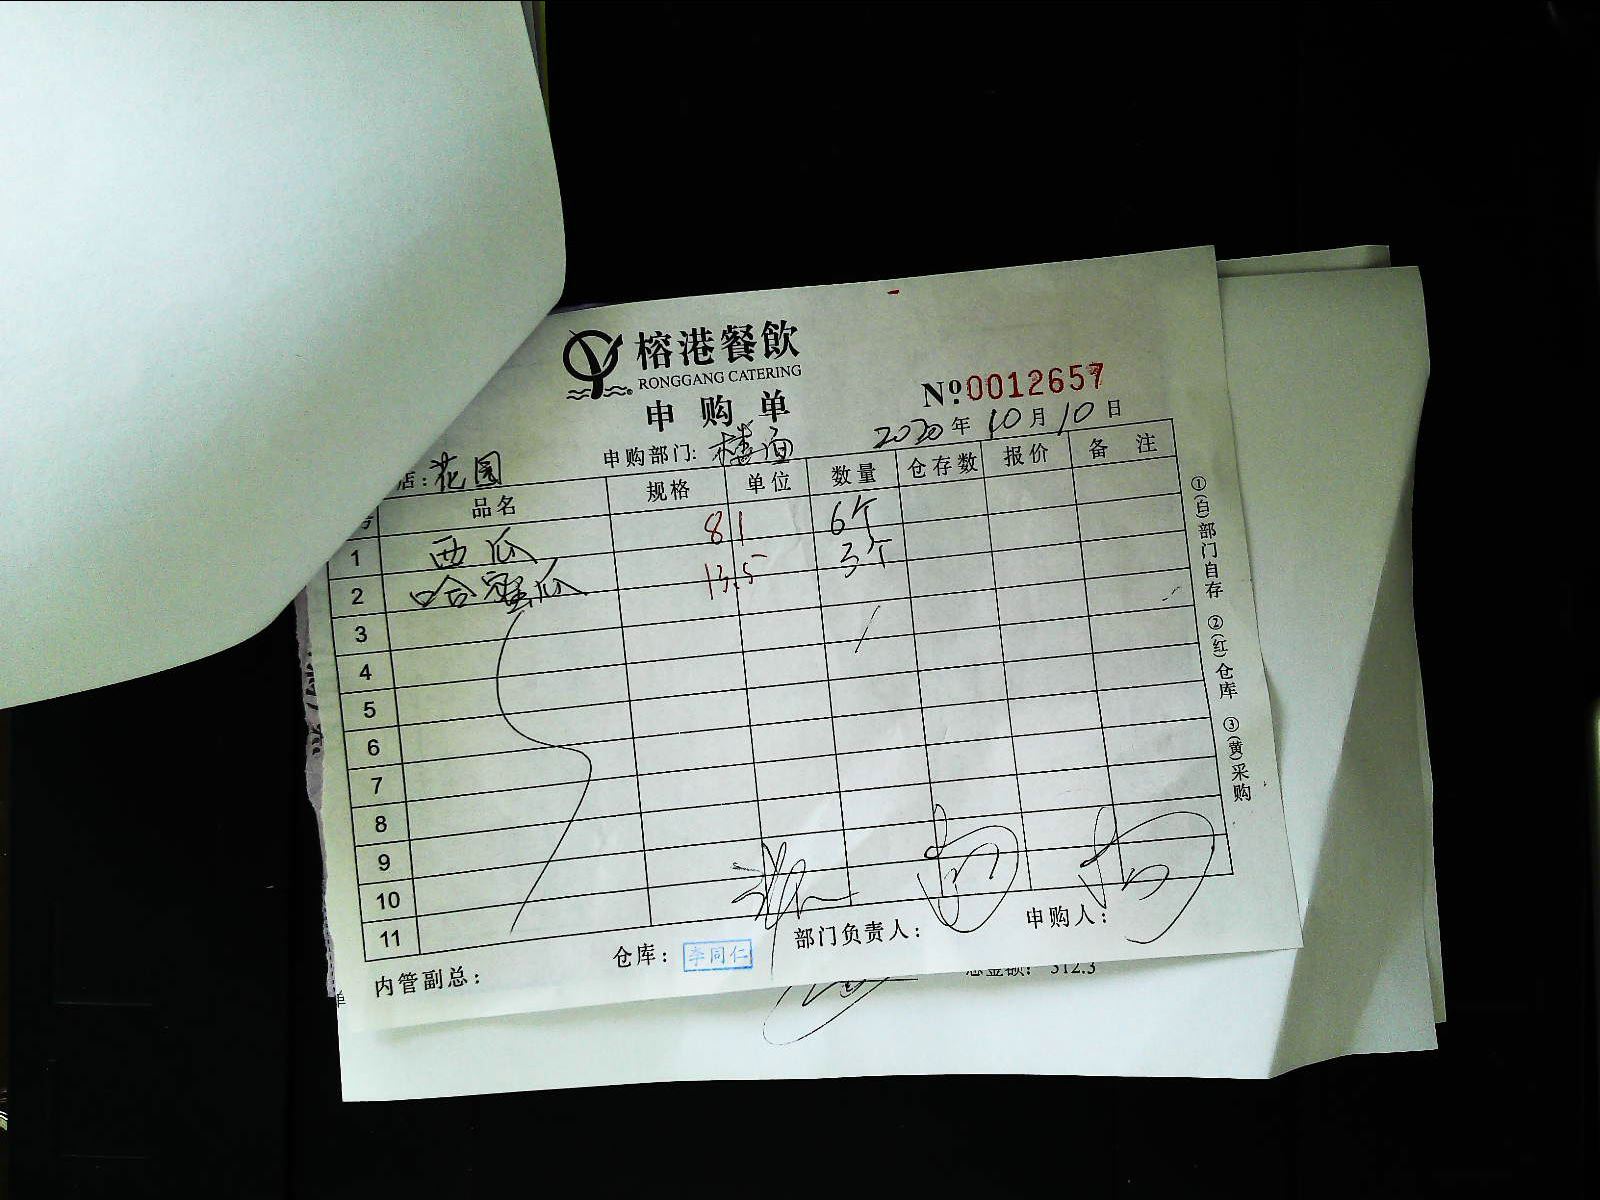 榕港餐飲
RONGGANG CATERING
申购单
№0012657
店:花园 申购部门:楼面 2020年10月10日
号 品名 规格 单位 数量 仓存数 报价 备注
1 西瓜 81 6个
2 哈蜜瓜 13.5 3个
3
4
5
6
7
8
9
10
11
内管副总: 仓库: 李同仁 部门负责人: 申购人:
①(白)部门自存 ②(红)仓库 ③(黄)采购
单
总金额: 312.3